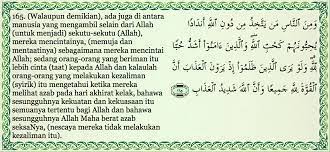 165. (Walaupun demikian), ada juga di antara
manusia yang mengambil selain dari Allah
(untuk menjadi) sekutu-sekutu (Allah),
mereka mencintainya, (memuja dan
mentaatinya) sebagaimana mereka mencintai
Allah; sedang orang-orang yang beriman itu
lebih cinta (taat) kepada Allah dan kalaulah
orang-orang yang melakukan kezaliman
(syirik) itu mengetahui ketika mereka
melihat azab pada hari akhirat kelak, bahawa
sesungguhnya kekuatan dan kekuasaan itu
semuanya tertentu bagi Allah dan bahawa
sesungguhnya Allah Maha berat azab
seksaNya, (nescaya mereka tidak melakukan
kezaliman itu).
وَمِنَ ٱلنَّاسِ مَن يَتَّخِذُ مِن دُونِ ٱللَّهِ أَندَادًا
يُحِبُّونَهُمْ كَحُبِّ ٱللَّهِ ۖ وَٱلَّذِينَ ءَامَنُوٓا۟ أَشَدُّ حُبًّا
لِّلَّهِ ۗ وَلَوْ يَرَى ٱلَّذِينَ ظَلَمُوٓا۟ إِذْ يَرَوْنَ ٱلْعَذَابَ أَنَّ
ٱلْقُوَّةَ لِلَّهِ جَمِيعًا وَأَنَّ ٱللَّهَ شَدِيدُ ٱلْعَذَابِ ١٦٥